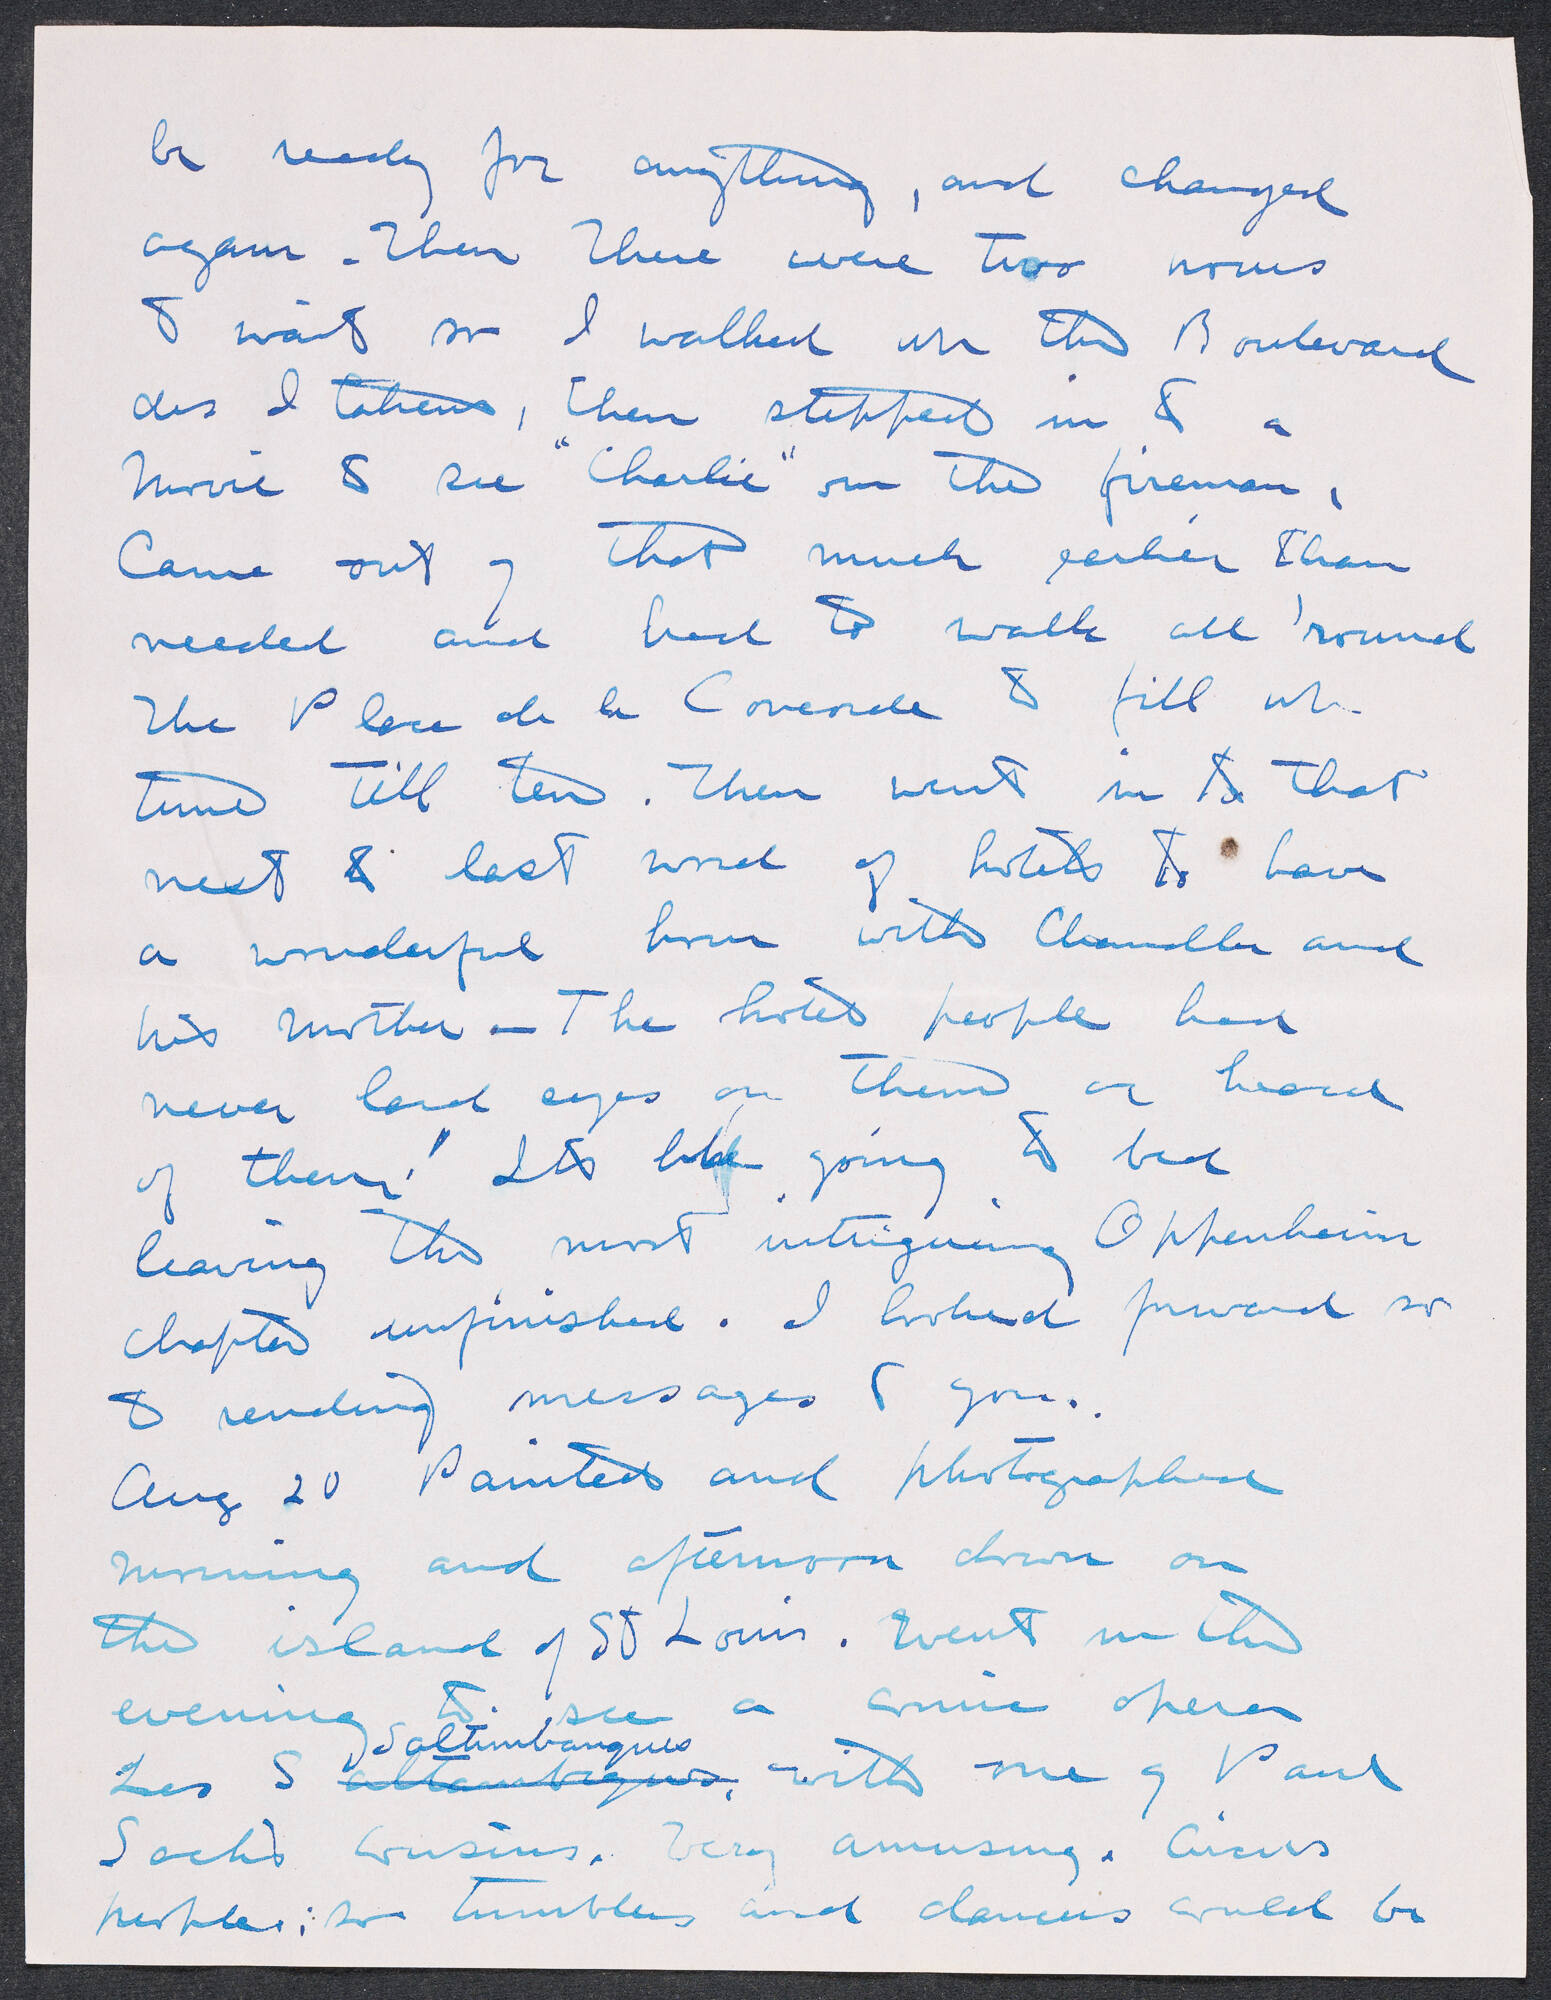 be ready for anything, and changed
again - Then there were two hours
to wait so I walked up the Boulevard
des Italiens, then stepped in to a
movie to see "Charlie" on the fireman,
Came out of that much earlier than
needed and had to walk all 'round
the Place de la Concorde to fill up
time till ten. Then went in to that
next to last word of hotels to have
a wonderful hour with Chandler and
his mother - The hotel people had
never laid eyes on them or heard
of them! Its like going to bed
leaving the most intriguing Oppenheim
chapter unfinished. I looked forward so
to sending messages to you.
Aug 20 Painted and photographed
morning and afternoon down on
the island of St Louis. Went in the
evening to see a comic opera
Les Saltimbanques, with one of Paul
Sach's cousins. Very amusing. Circus
people; so tumblers and dancers could be